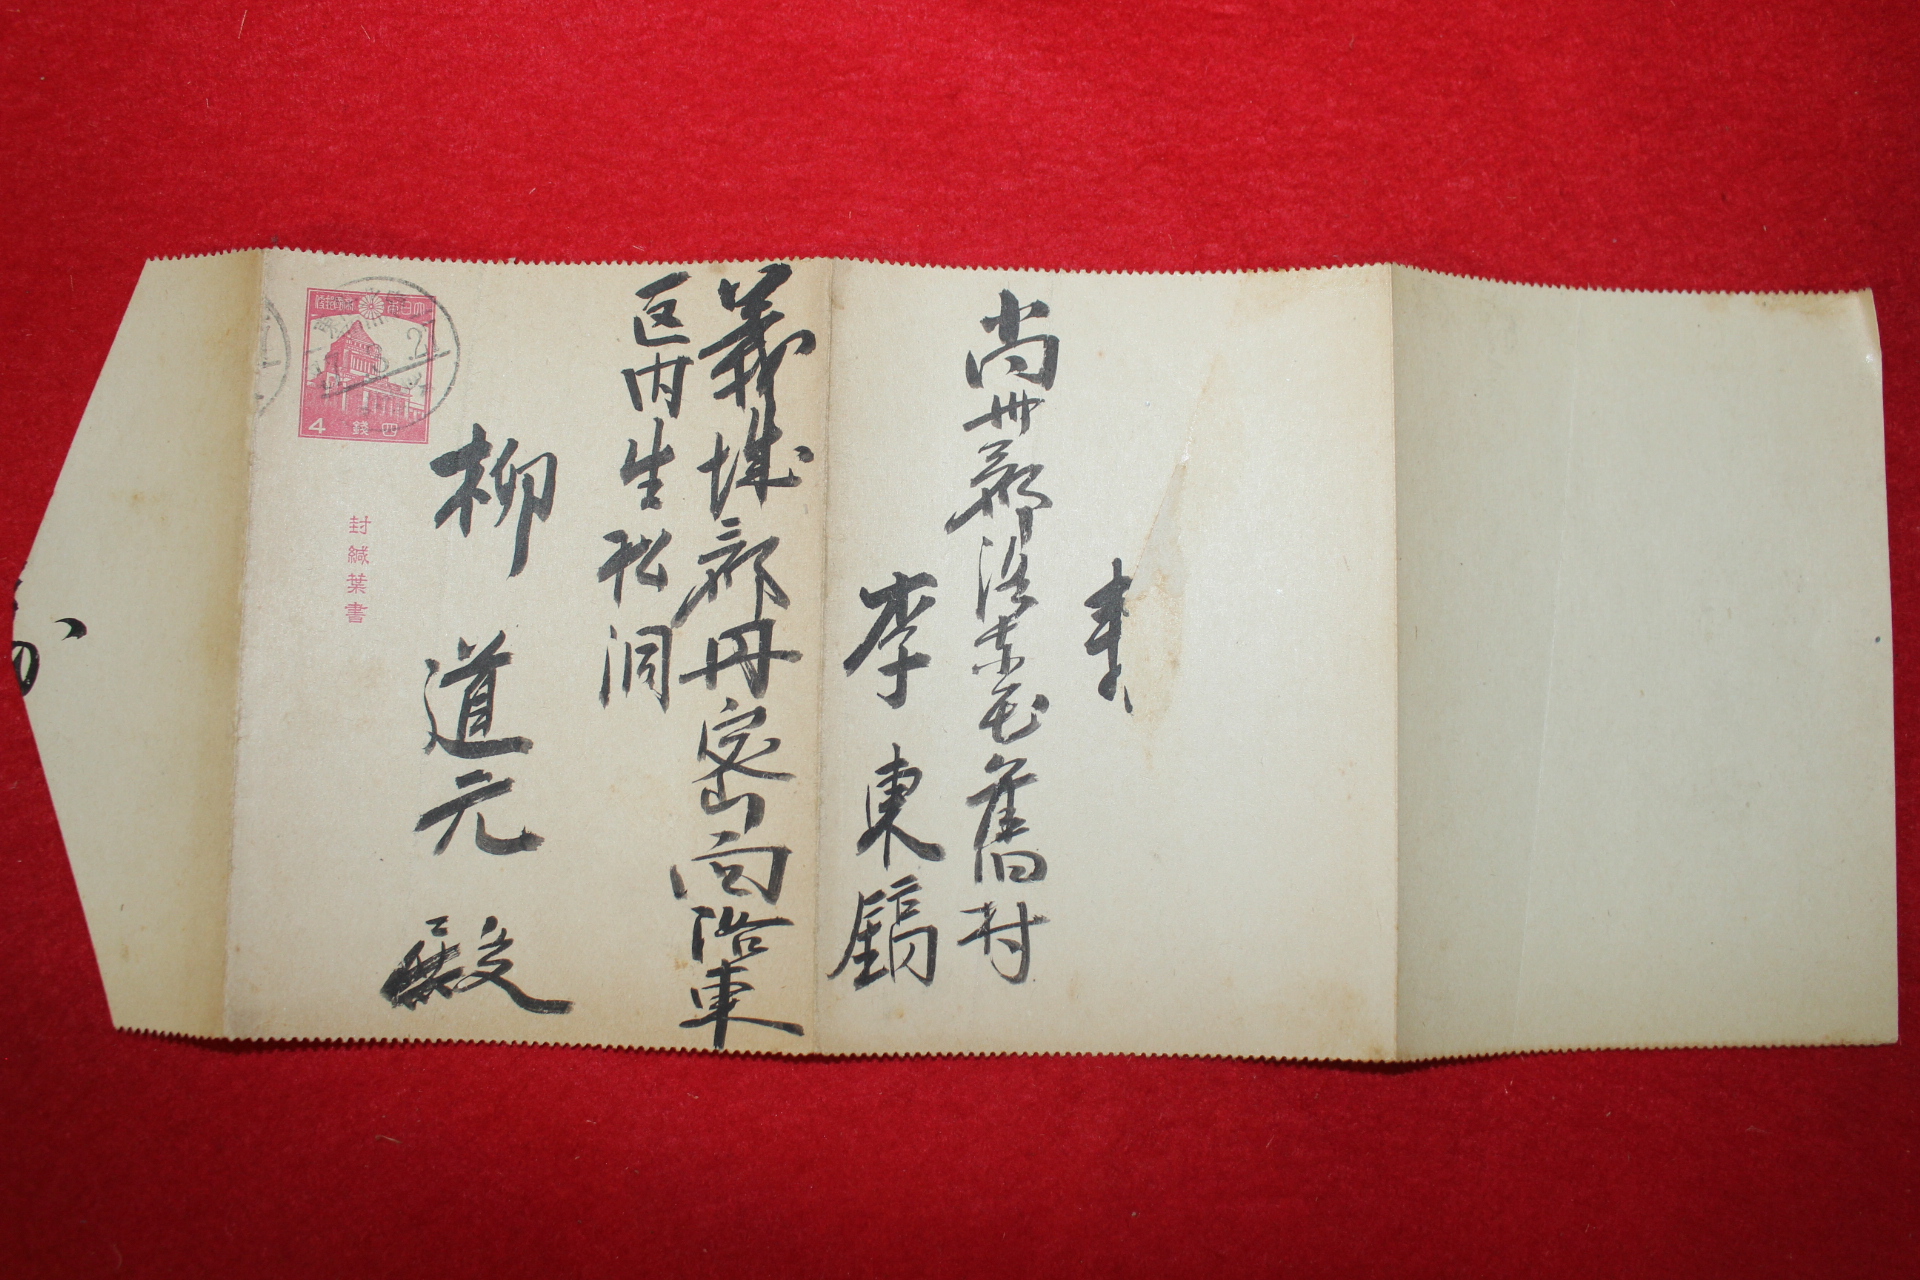 尚州郡洛東面舊村
李東鎬
義城郡丹密面洛東
区内生松洞
柳道元殿
大日本帝國郵便
4 四錢
封緘葉書